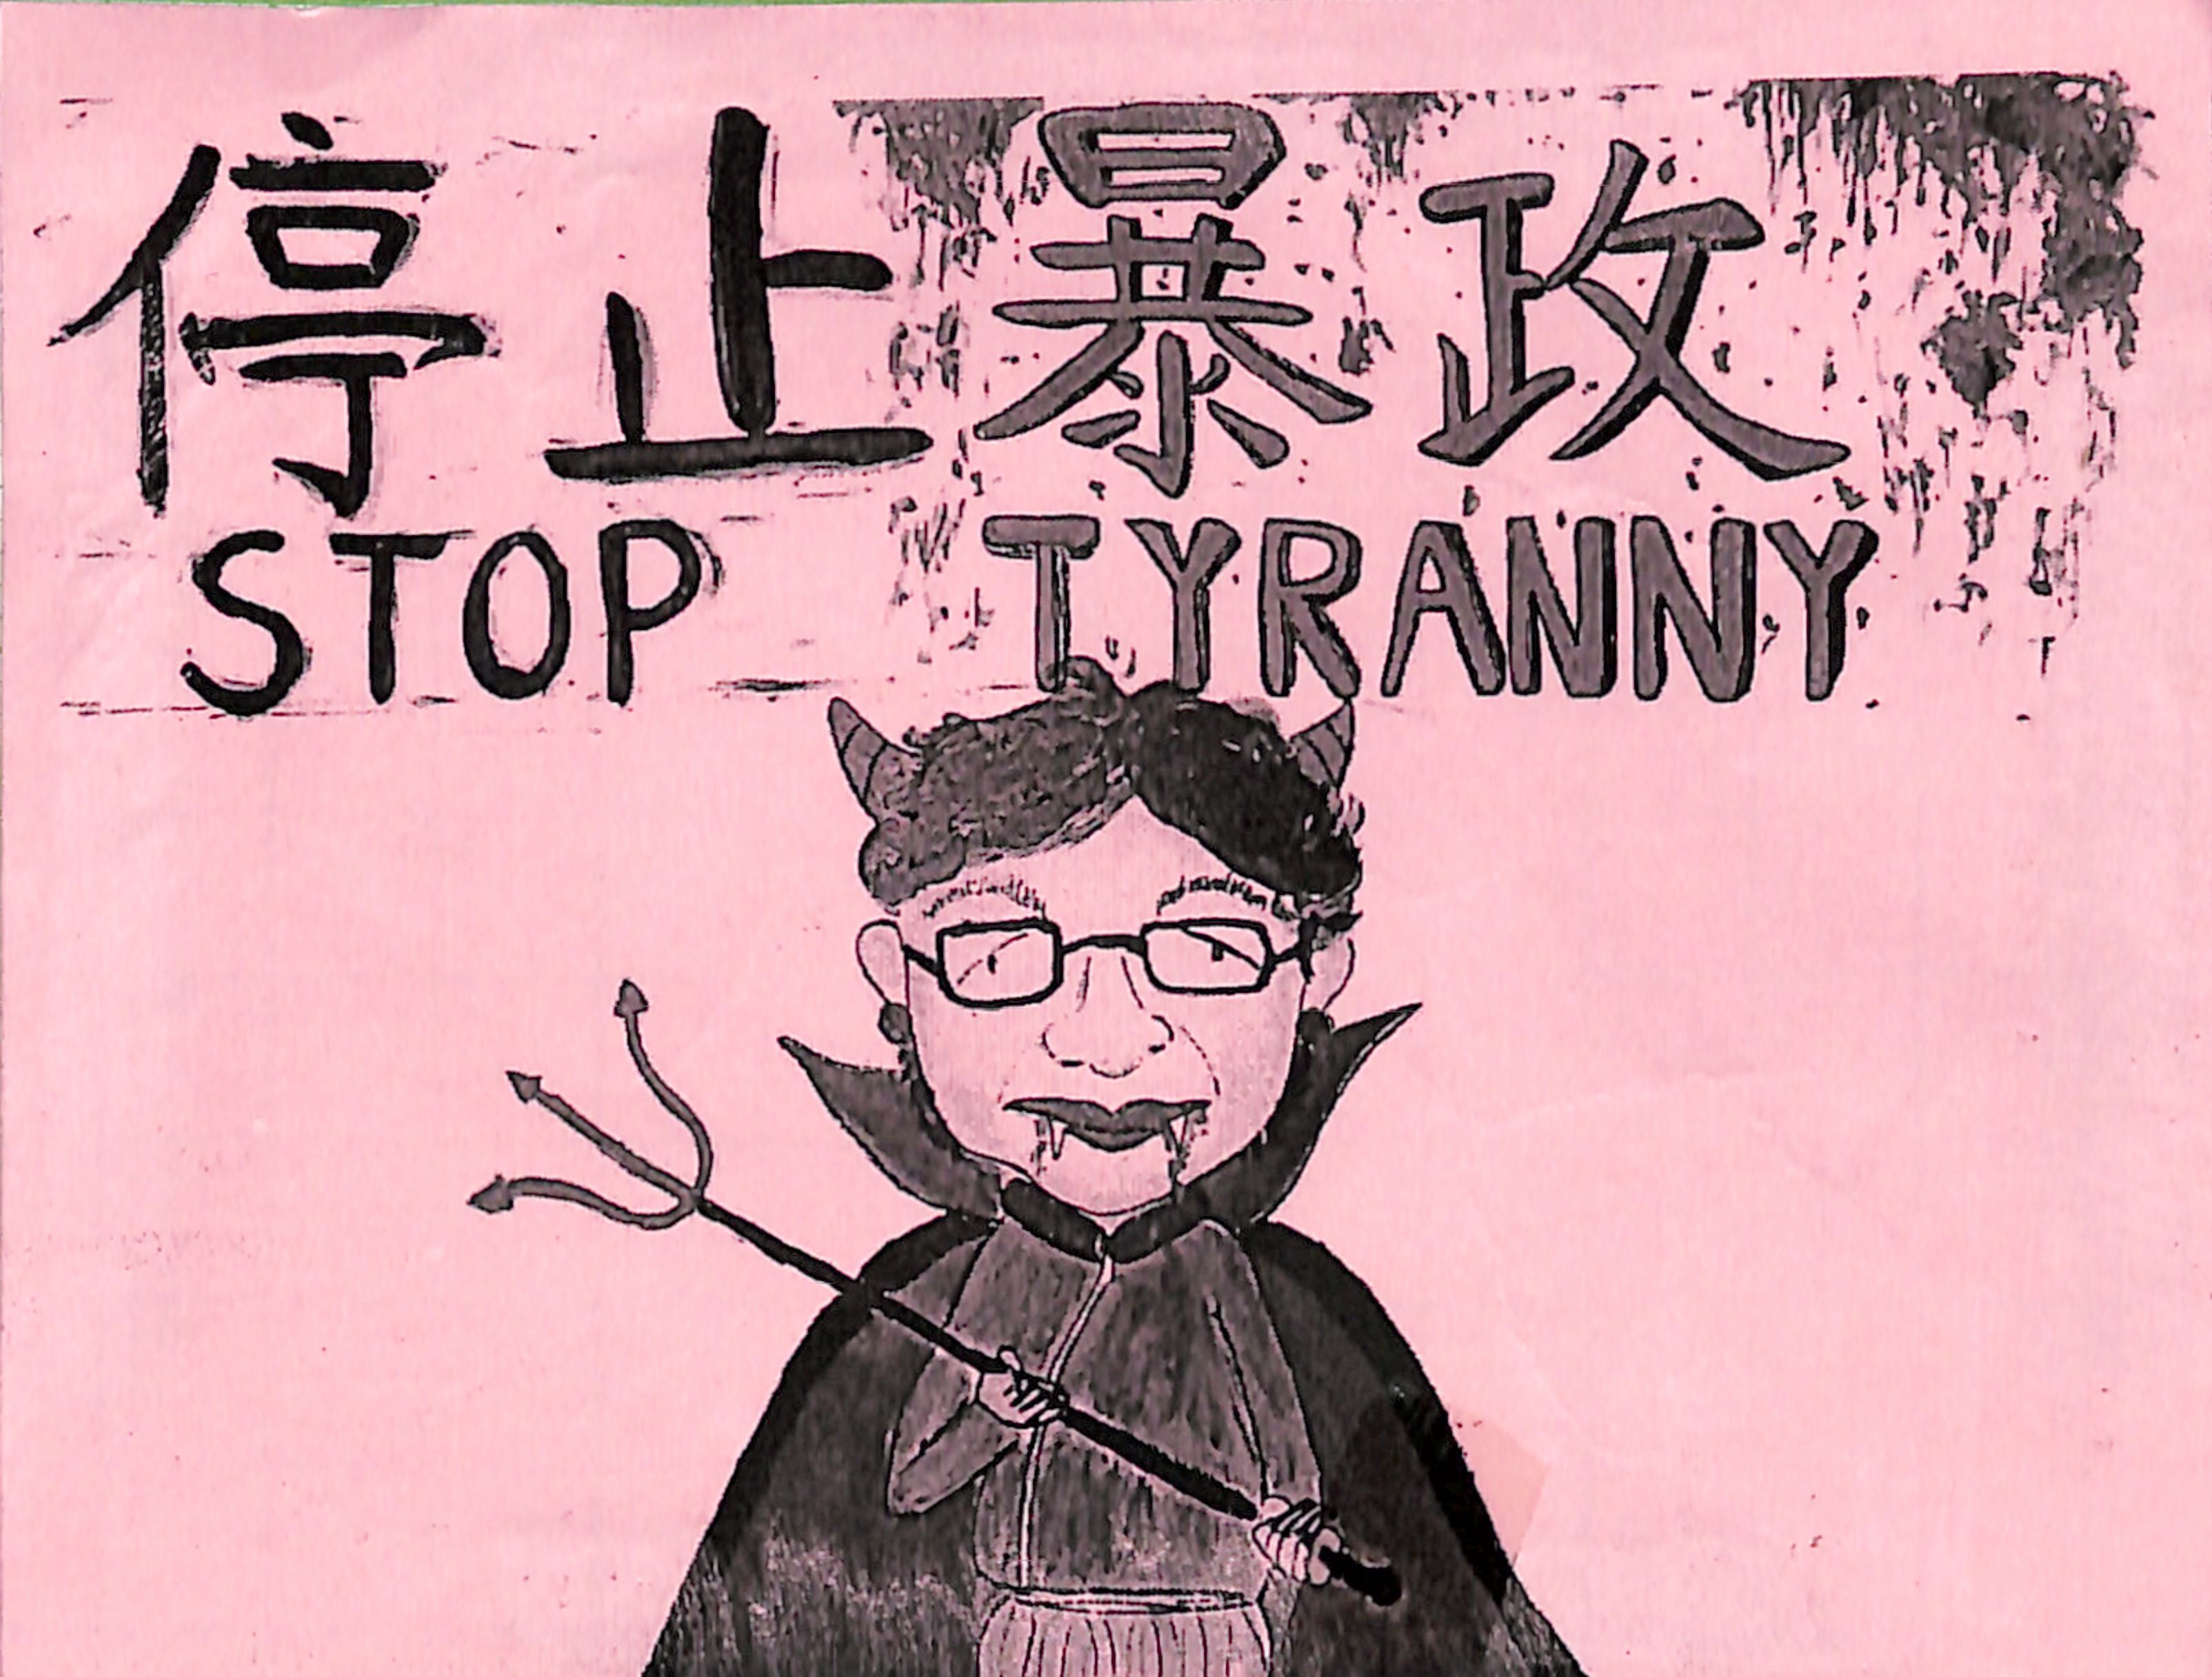 停止暴政
STOP TYRANNY